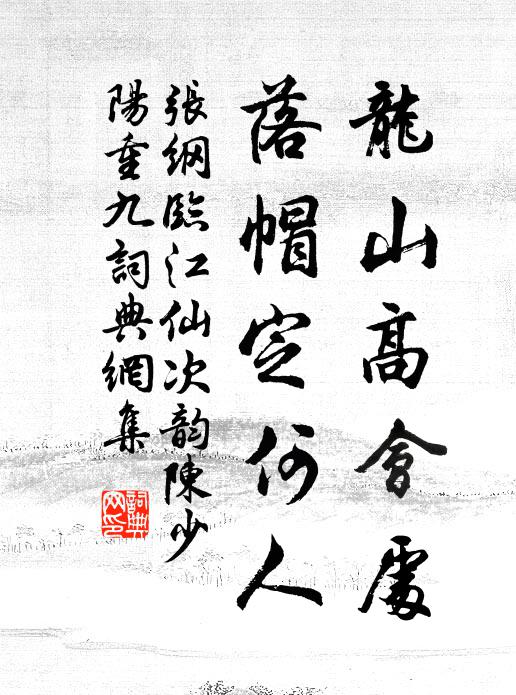 龍山高會處
落帽定何人
張綱臨江仙次韵陳少
陽重九詞典網集
詞典
网印